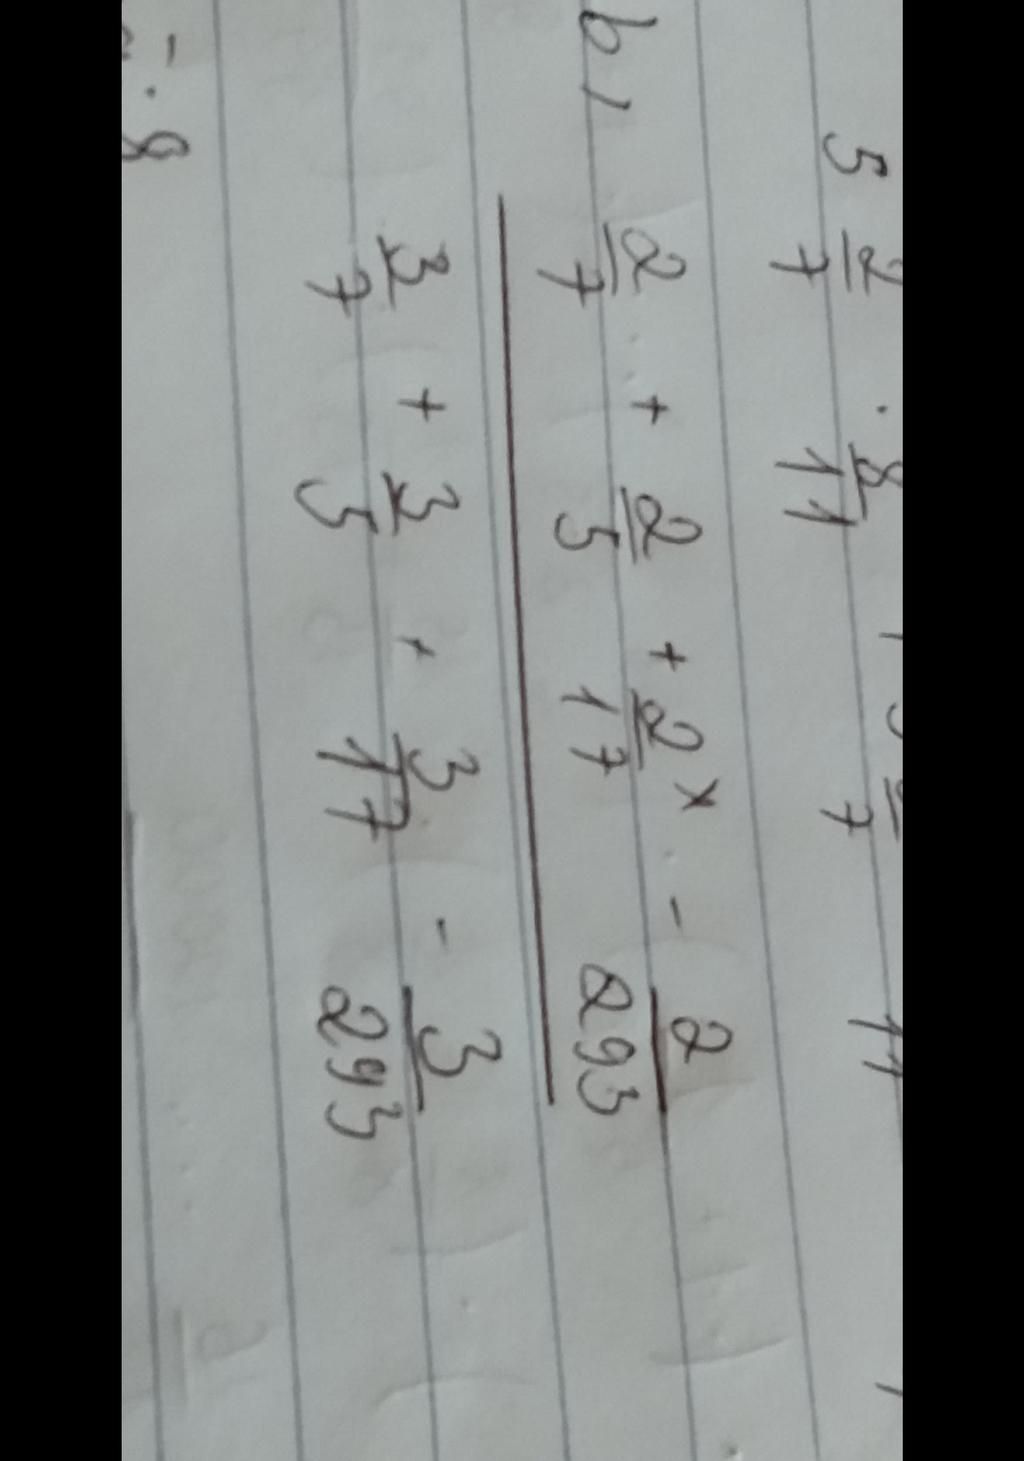 5 2/7 · 8/11 5 7 11
b, 2/7 + 2/5 + 2/17 x - 2/293
3/7 + 3/5 + 3/17 - 3/293
· 8